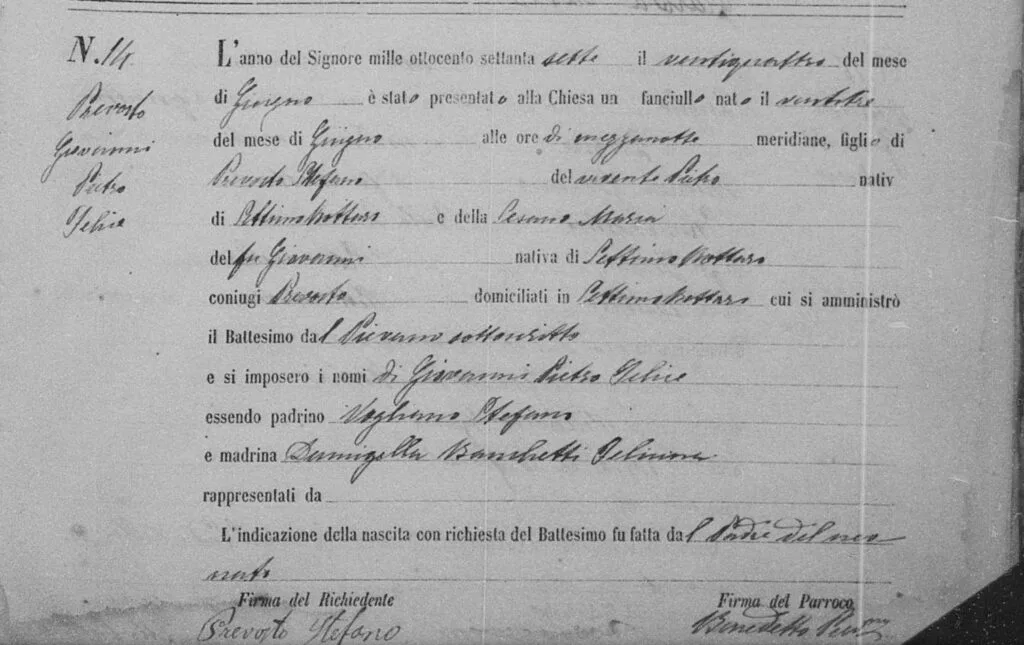 N. 14
Prevosto
Giovanni
Pietro
Felice
L'anno del Signore mille ottocento settanta sette il ventiquattro del mese
di Giugno è stato presentato alla Chiesa un fanciullo nato il ventitre
del mese di Giugno alle ore di mezzanotte meridiane, figlio di
Prevosto Stefano del vivente Pietro nativ
di Settimo Rottaro e della Cesano Maria
del fu Giovanni nativa di Settimo Rottaro
coniugi Prevosto domiciliati in Settimo Rottaro cui si amministrò
il Battesimo dal Pievano sottoscritto
e si imposero i nomi di Giovanni Pietro Felice
essendo padrino Vogliano Stefano
e madrina Damigella Banchetti
rappresentati da
L'indicazione della nascita con richiesta del Battesimo fu fatta dal Padre del neo
nato
Firma del Richiedente Firma del Parroco
Prevosto Stefano Benedetto